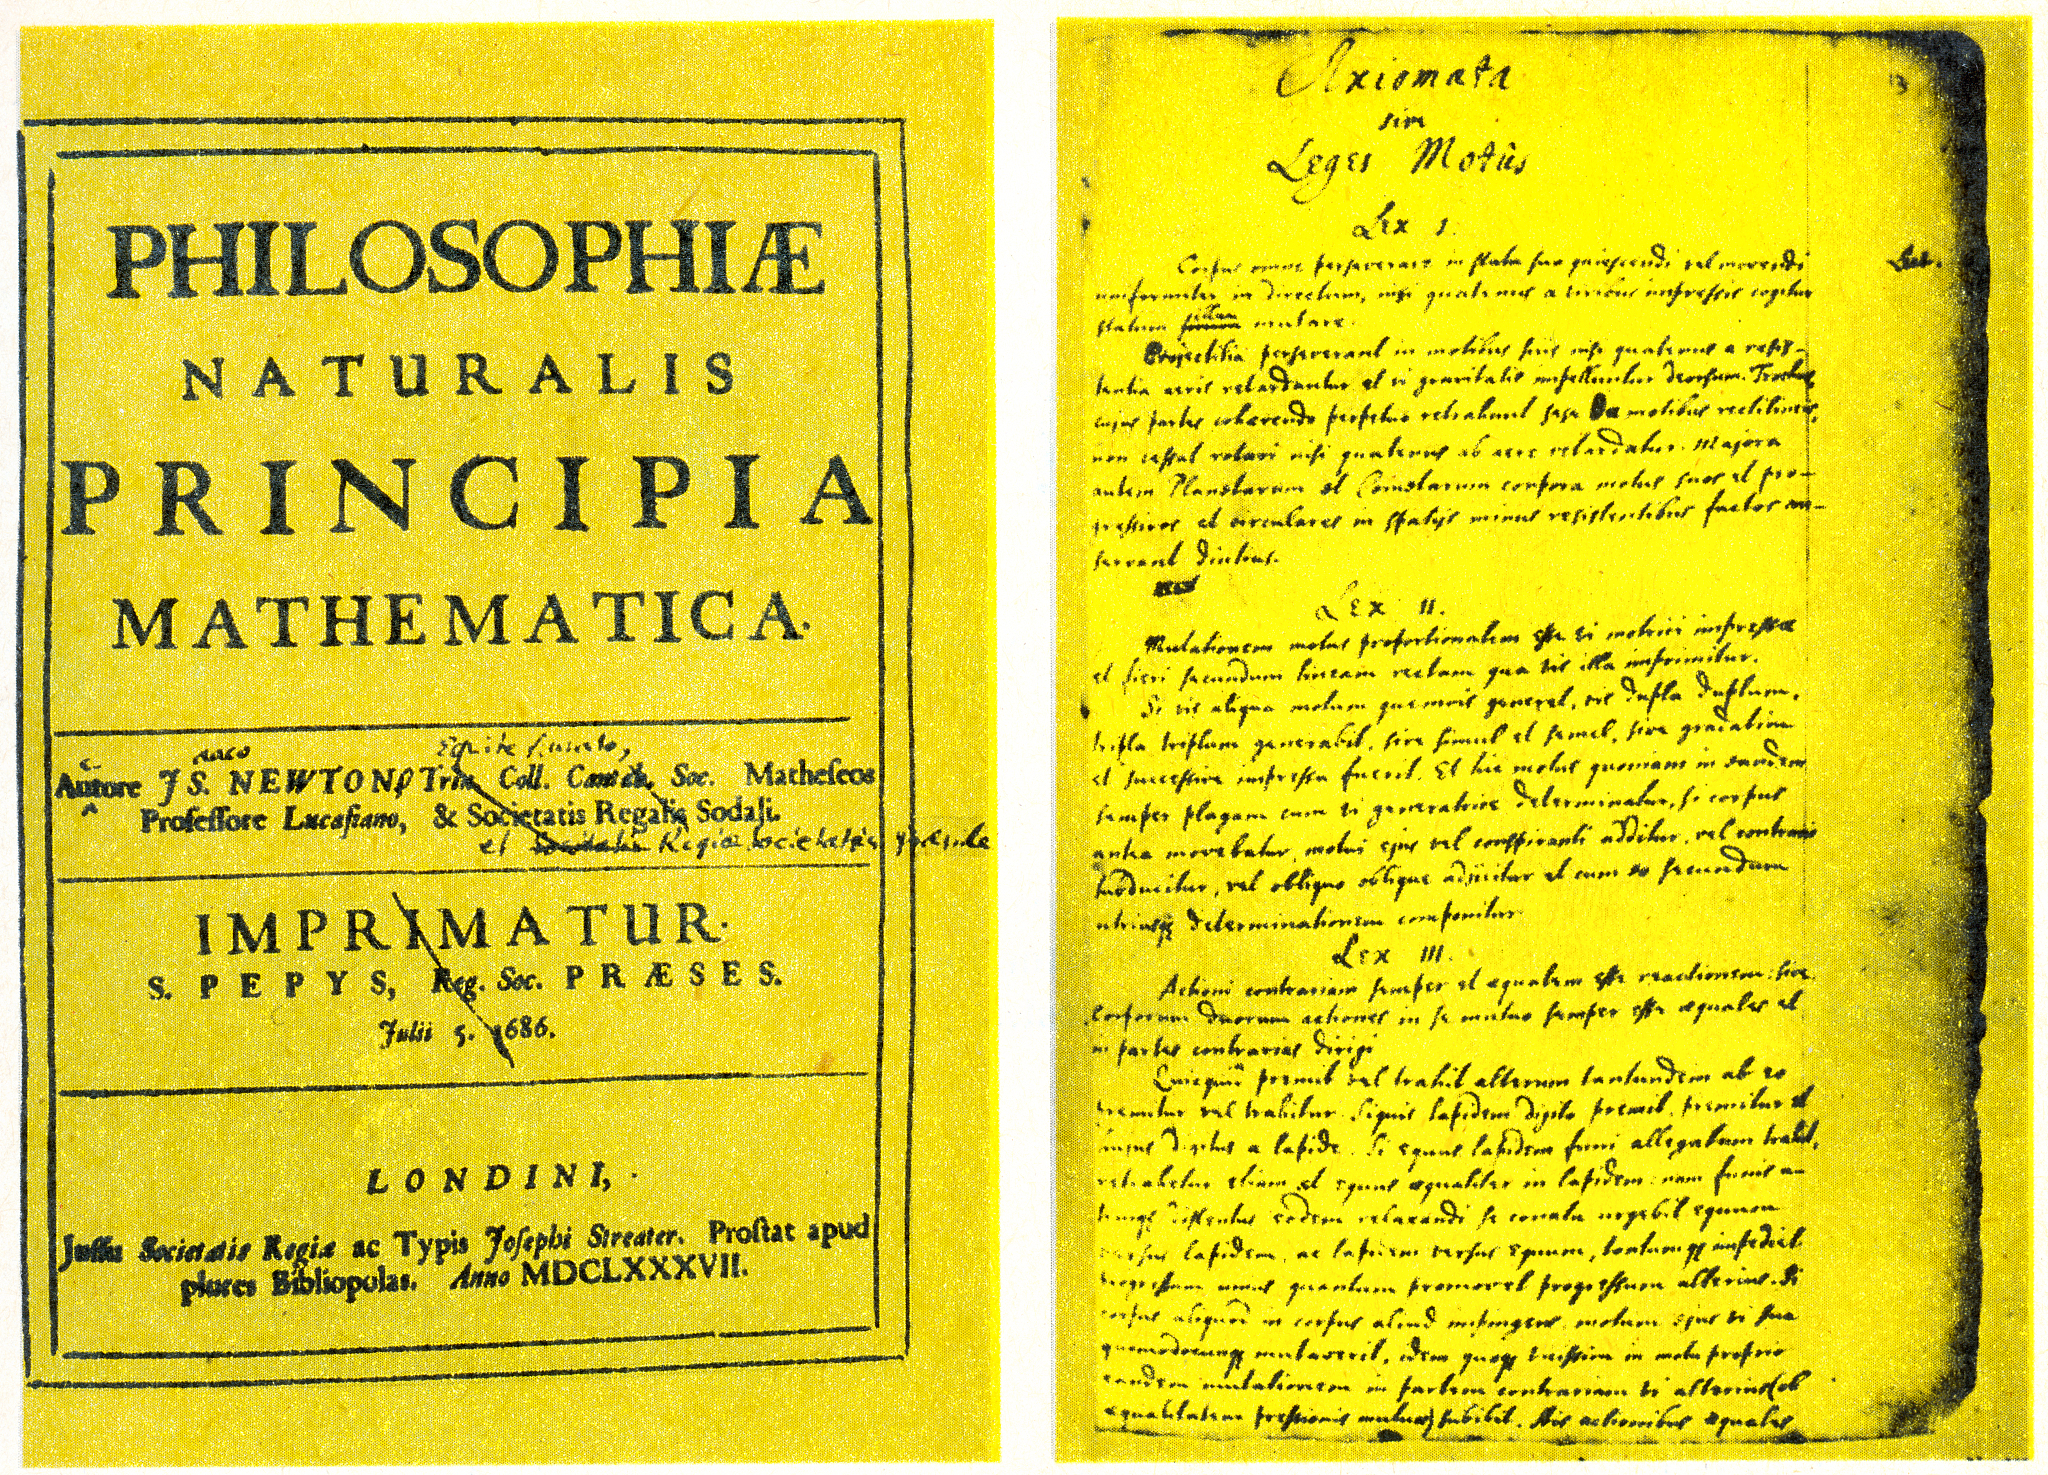 PHILOSOPHIÆ
NATURALIS
PRINCIPIA
MATHEMATICA.
Equite
Autore JS. NEWTON, Trin. Coll. Cantab. Soc. Matheseos
Professore Lucasiano, & Societatis Regalis Sodali.
et Societatis Regiæ Societatis præside
IMPRIMATUR.
S. PEPYS, Reg. Soc. PRÆSES.
Julii 5. 1686.
LONDINI,
Jussu Societatis Regiæ ac Typis Josephi Streater. Prostat apud
plures Bibliopolas. Anno MDCLXXXVII.
Axiomata
sive
Leges Motûs
Lex I.
Corpus omne perseverare in statu suo quiescendi vel movendi
uniformiter in directum, nisi quatenus a viribus impressis cogitur
statum illum mutare.
Projectilia perseverant in motibus suis nisi quatenus a resis-
tentia aeris retardantur et vi gravitatis impelluntur deorsum. Trochus
cujus partes cohærendo perpetuo retrahunt sese a motibus rectilineis,
non cessat rotari nisi quatenus ab aere retardatur. Majora
autem Planetarum et Cometarum corpora motus suos et pro-
gressivos et circulares in spatijs minus resistentibus factos con-
servant diutius.
Lex II.
Mutationem motus proportionalem esse vi motrici impressæ
et fieri secundum lineam rectam qua vis illa imprimitur.
Si vis aliqua motum quemvis generet, vis dupla duplum,
tripla triplum generabit, sive simul et semel, sive gradatim
et successive impressa fuerit. Et hic motus quoniam in eandem
semper plagam cum vi generatrice determinatur, si corpus
antea movebatur, motui ejus vel conspiranti additur, vel contrario
subducitur, vel obliquo oblique adjicitur et cum eo secundum
utriusq determinationem componitur.
Lex III.
Actioni contrariam semper et æqualem esse reactionem: sive
corporum duorum actiones in se mutuo semper esse æquales et
in partes contrarias dirigi
Quicquid premit vel trahit alterum tantundem ab eo
premitur vel trahitur. Siquis lapidem digito premit, premitur et
hujus digitus a lapide. Si equus lapidem funi allegatum trahit,
retrahetur etiam et equus æqualiter in lapidem: nam funis u-
trinq distentus eodem relaxandi se conatu urgebit equum
versus lapidem, ac lapidem versus equum, tantumq impediet
progressum unius quantum promovet progressum alterius. Si
corpus aliquod in corpus aliud impingens, motum ejus vi sua
quomodocunq mutaverit, idem quoq vicissim in motu proprio
eandem mutationem in partem contrariam vi alterius (ob
æqualitatem pressionis mutuæ) subibit. His actionibus æquales